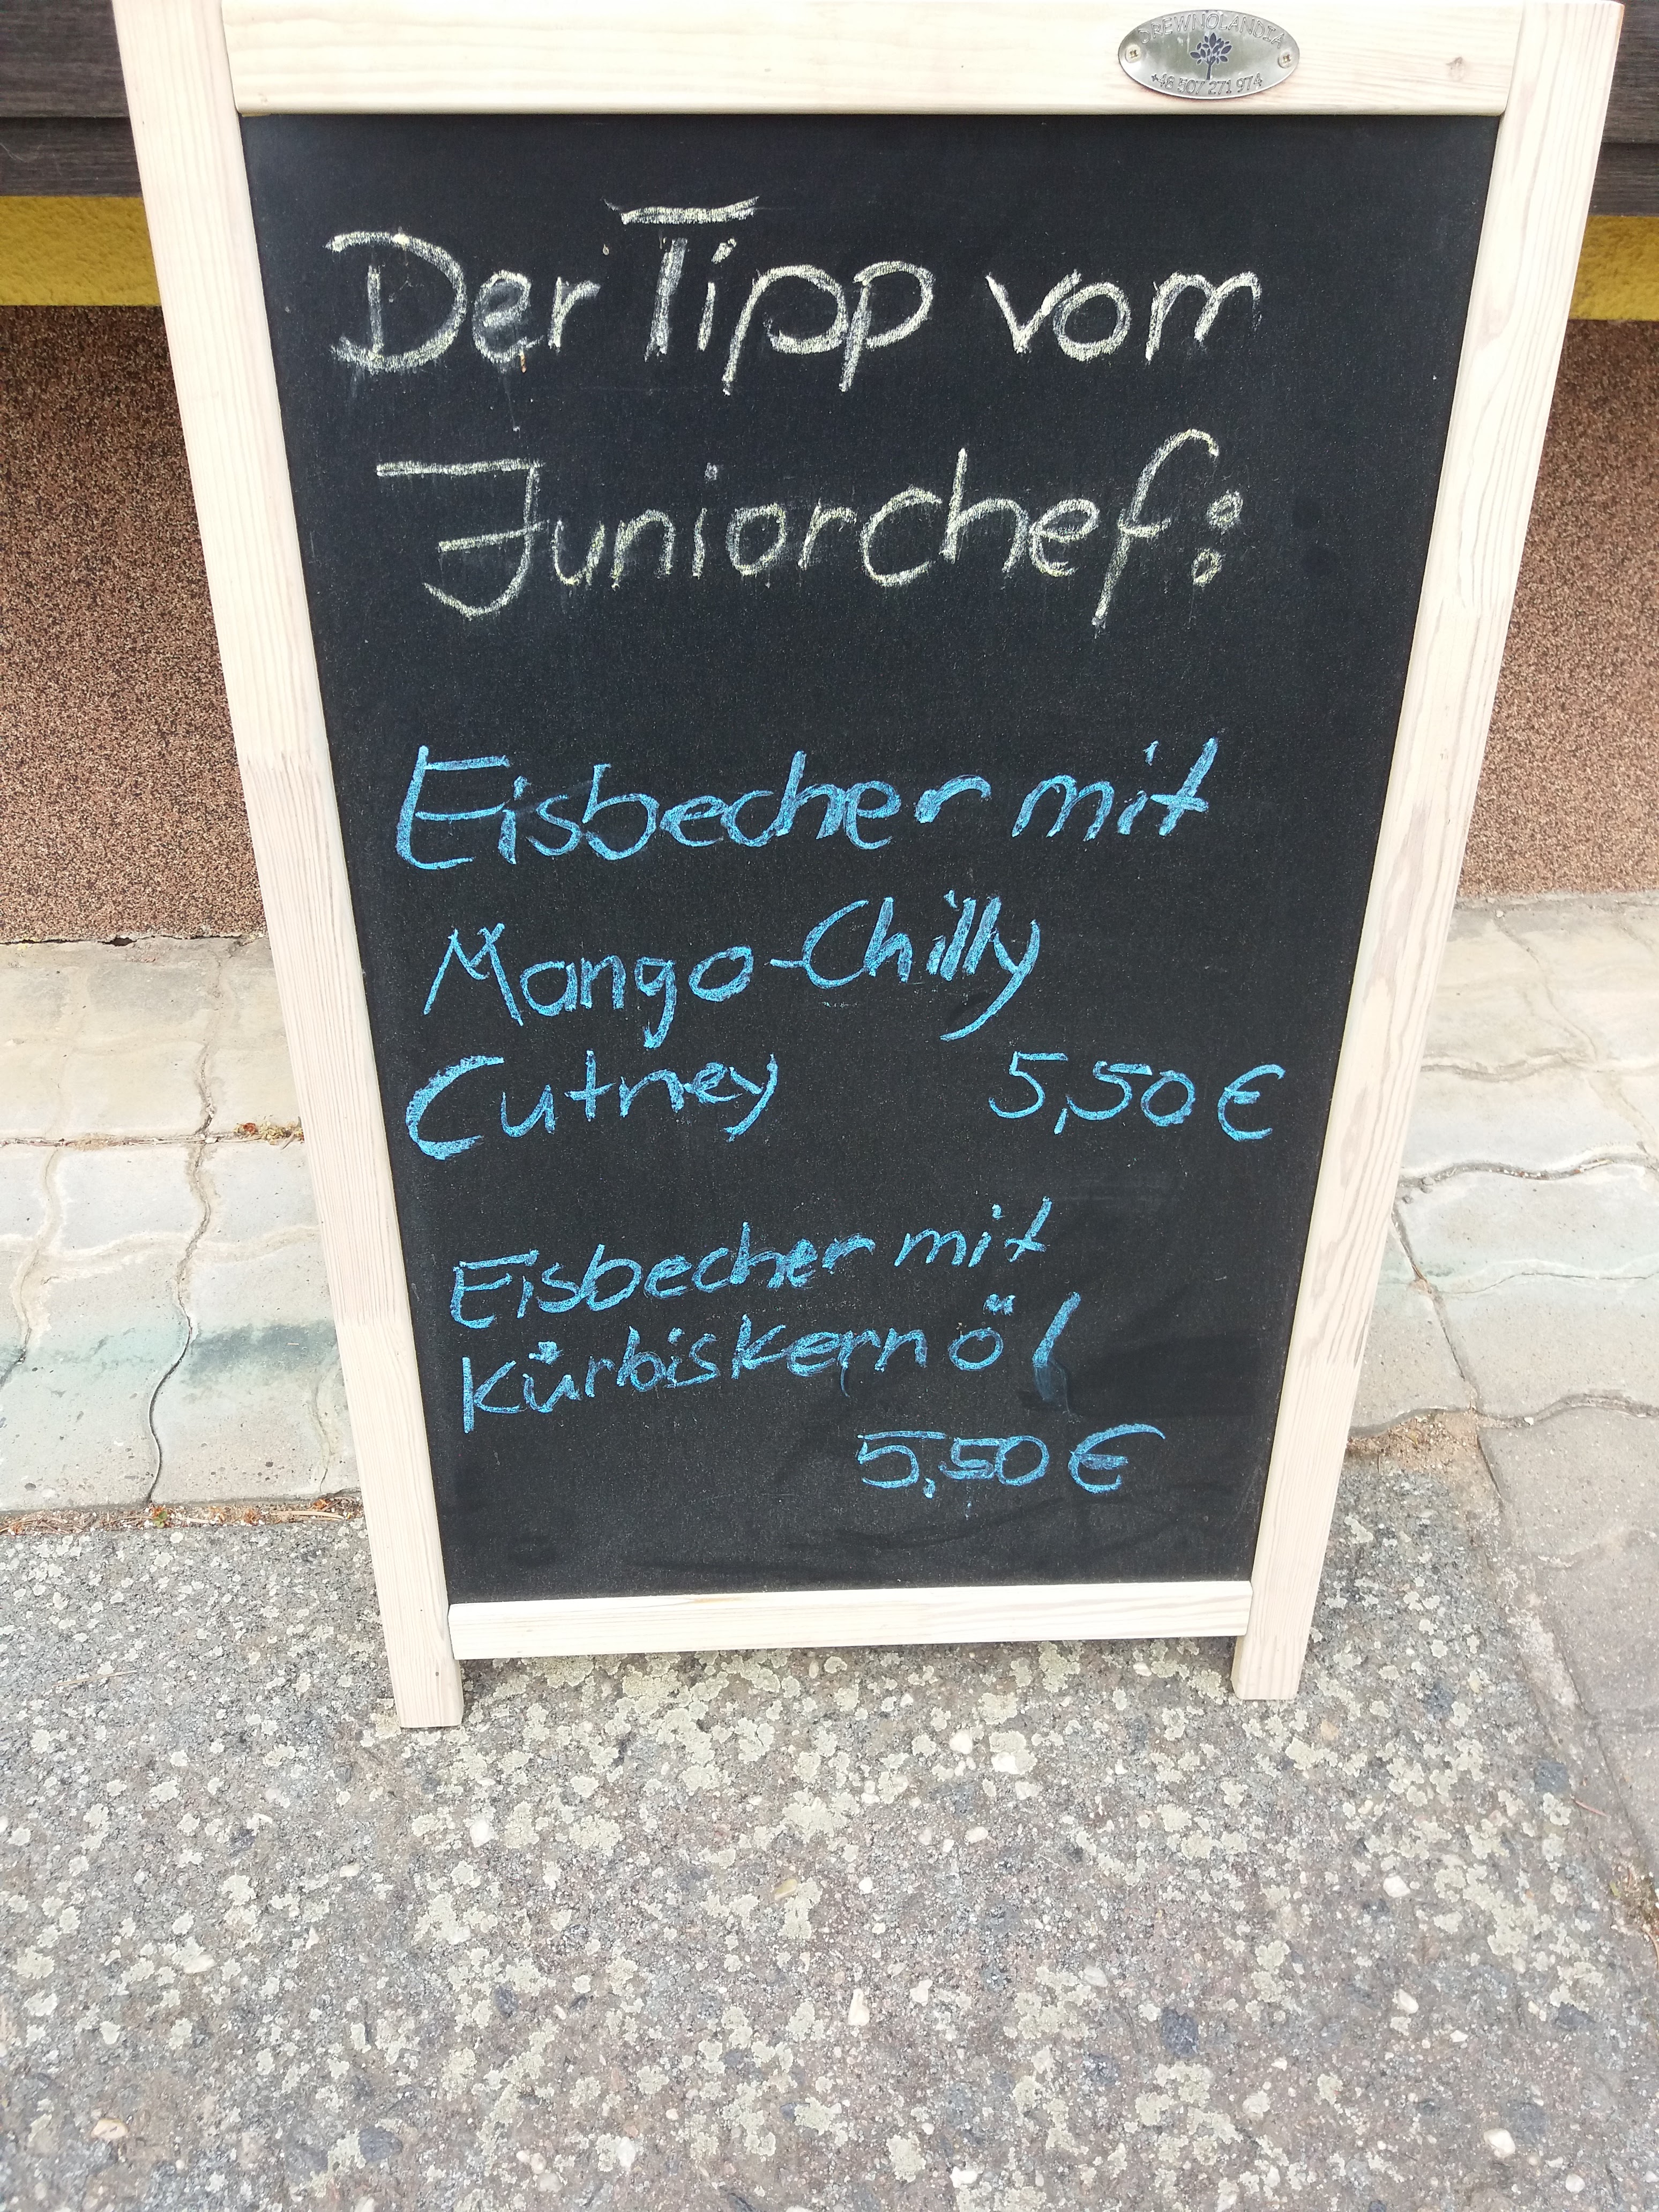 DREWNOLANDIA
+48 507 271 974
Der Tipp vom
Juniorchef:
Eisbecher mit
Mango-Chilly
Cutney 5,50 €
Eisbecher mit
Kürbiskernöl
5,50 €